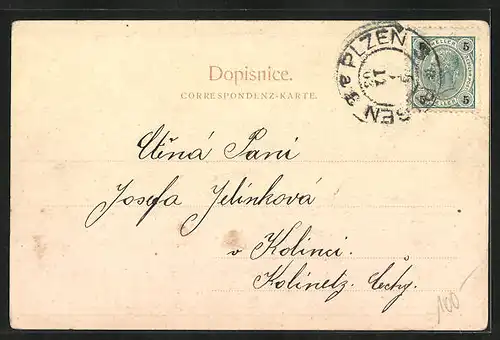 Dopisnice.
CORRESPONDENZ-KARTE.
PLZEŇ
PILSEN
12
03
HELLER
5
5
Ctěná Paní
Josefa Jelínková
v Kolinci.
Kolinetz. Čechy.
100